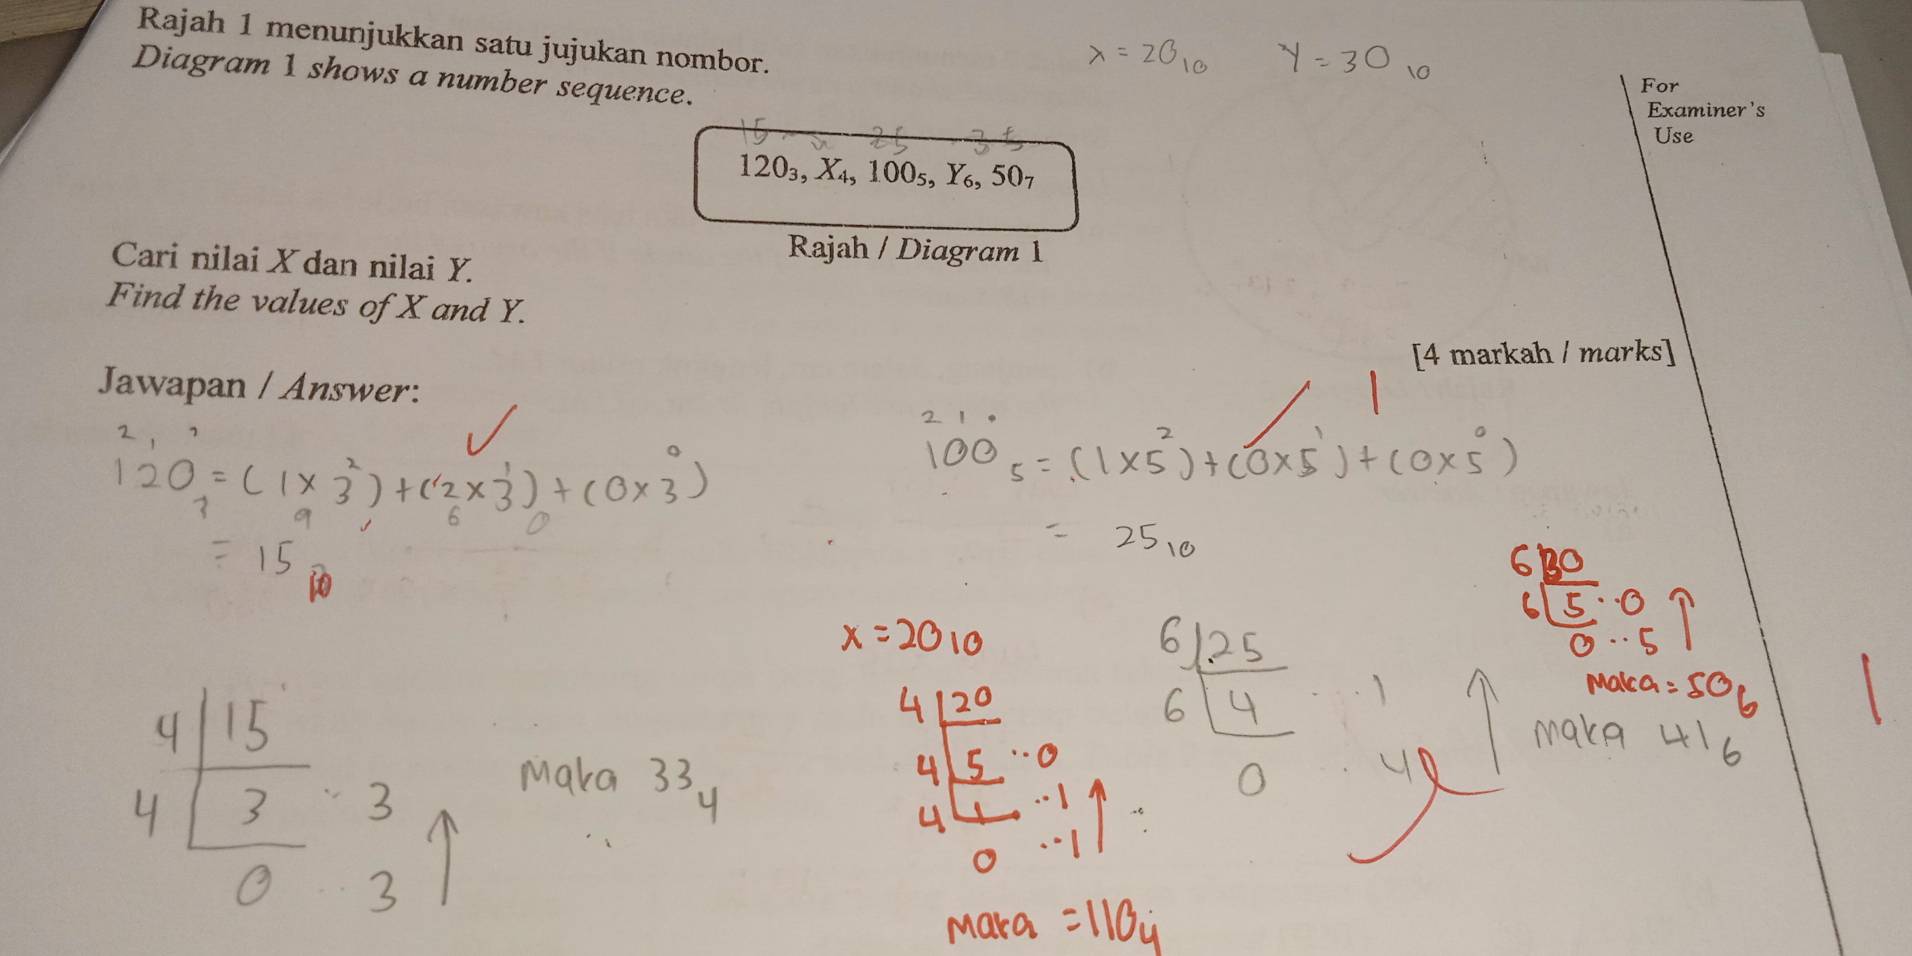 Rajah 1 menunjukkan satu jujukan nombor.
Diagram 1 shows a number sequence.
x = 20₁₀ Y = 30₁₀
For
Examiner's
Use
15 x 25 35
120₃, X₄, 100₅, Y₆, 50₇
Rajah / Diagram 1
Cari nilai X dan nilai Y.
Find the values of X and Y.
[4 markah / marks]
Jawapan / Answer:
2 1
120₃ = (1 × 3²) + (2 × 3¹) + (0 × 3⁰)
9 6 0
= 15₁₀
2 1 0
100₅ = (1 × 5²) + (0 × 5¹) + (0 × 5⁰)
= 25₁₀
1
4 15
4 3 .. 3
0 .. 3
Maka 33₄
x = 20₁₀
4 20
4 5 .. 0
4 1 .. 1
0 .. 1
Maka = 110₄
6 25
6 4 .. 1
0 .. 4
maka 41₆
6 30
6 5 .. 0
0 .. 5
Maka = 50₆
1